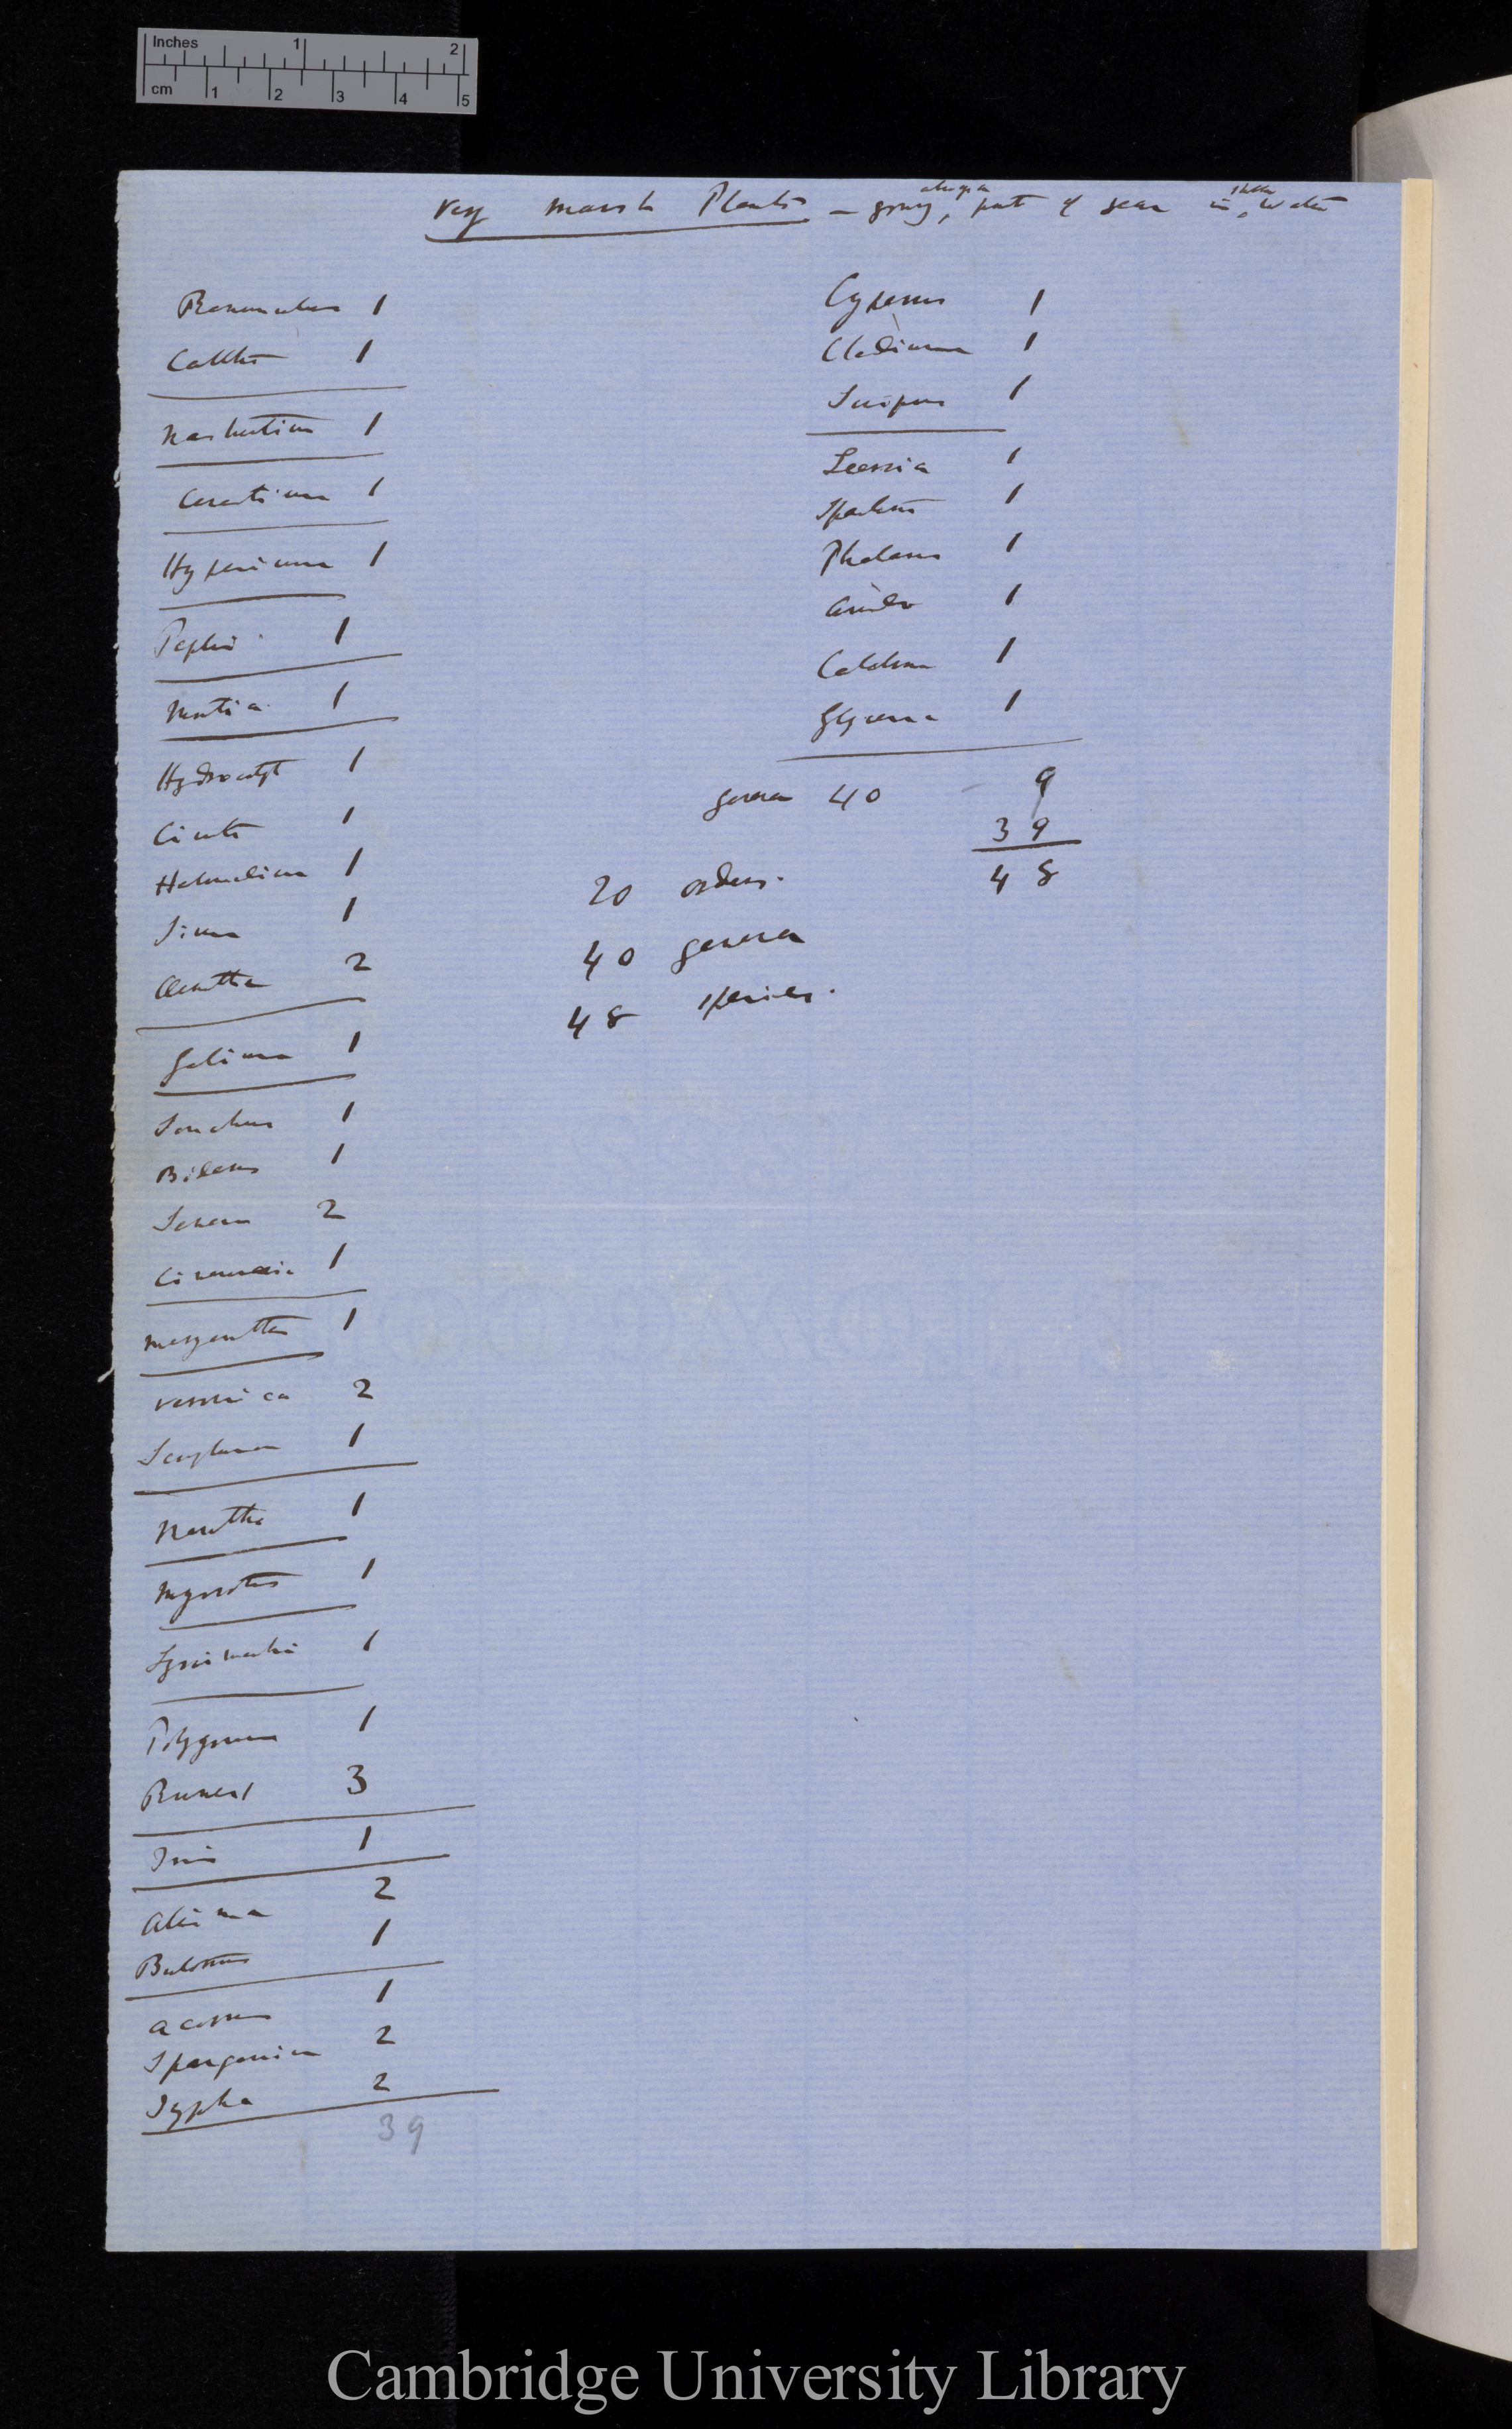 Inches 1 2
cm 1 2 3 4 5
very marsh Plants – growing, always part of year in shallow water
Ranunculus 1
Caltha 1
Nasturtium 1
Cerastium 1
Hypericum 1
Peplis 1
Montia 1
Hydrocotyl 1
Cicuta 1
Helosciadium 1
Sium 1
Œnanthe 2
Galium 1
Sonchus 1
Bidens 1
Senecio 2
Cineraria 1
Menyanthes 1
Veronica 2
Scrophularia 1
Mentha 1
Myosotis 1
Lysimachia 1
Polygonum 1
Rumex 3
Iris 1
Alisma 2
Butomus 1
Acorus 1
Sparganium 2
Typha 2
39
Cyperus 1
Cladium 1
Scirpus 1
Leersia 1
Spartina 1
Phalaris 1
Arundo 1
Catabrosa 1
Glyceria 1
genera 40 9
39
48
20 orders.
40 genera
48 species.
Cambridge University Library